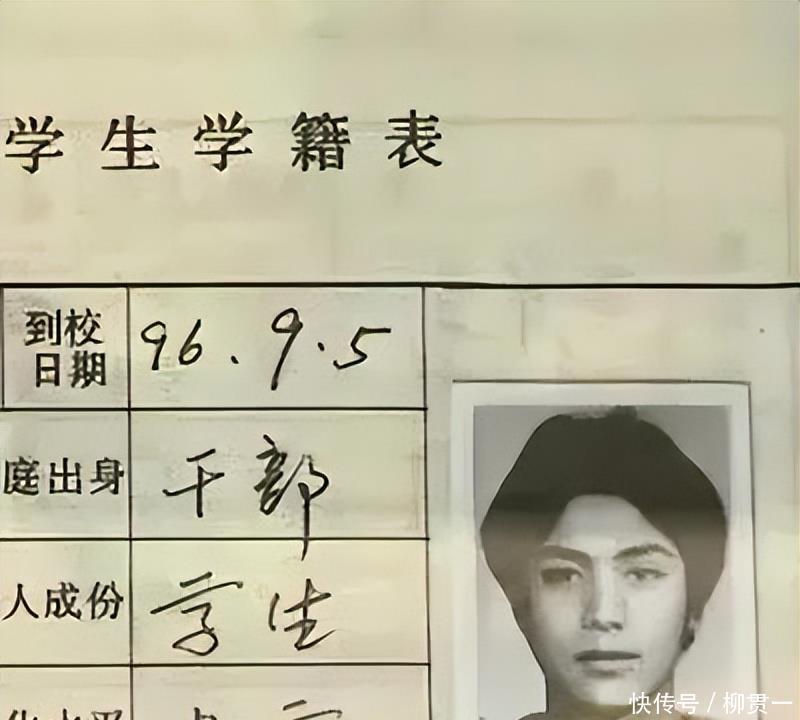 学生学籍表
到校
日期
96.9.5
庭出身
干部
人成份
学生
快传号 / 柳贯一